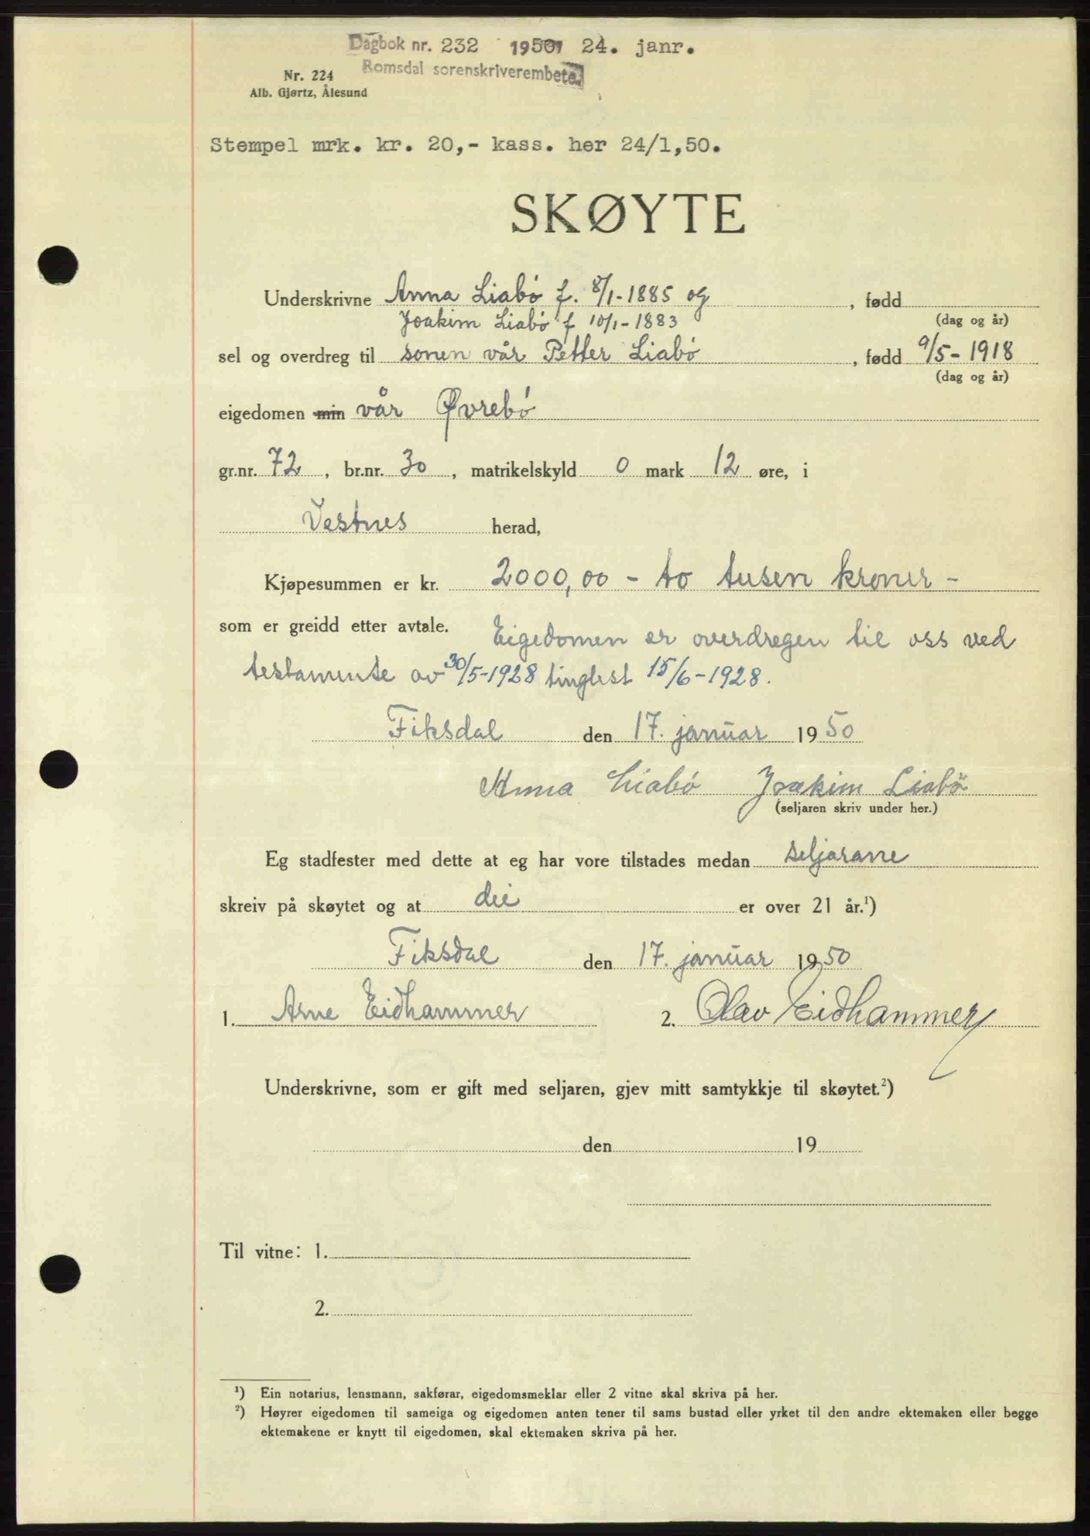 Dagbok nr. 232 1950 24. janr.
Romsdal sorenskriverembete.
Nr. 224
Alb. Gjørtz, Ålesund
Stempel mrk. kr. 20,- kass. her 24/1,50.
SKØYTE
Underskrivne Anna Liabø f. 8/1-1885 og , fødd
Joakim Liabø f 10/1-1883 (dag og år)
sel og overdreg til sonen vår Petter Liabø , fødd 9/5-1918
(dag og år)
eigedomen min vår Øvrebø
gr.nr. 72 , br.nr. 30 , matrikelskyld 0 mark 12 øre, i
Vestnes herad,
Kjøpesummen er kr. 2000,00 - to tusen kroner -
som er greidd etter avtale. Eigedomen er overdregen til oss ved
testamente av 30/5-1928 tinglest 15/6-1928.
Fiksdal den 17. januar 1950
Anna Liabø Joakim Liabø
(seljaren skriv under her.)
Eg stadfester med dette at eg har vore tilstades medan seljarane
skreiv på skøytet og at dei er over 21 år.¹)
Fiksdal den 17. januar 1950
1. Arne Eidhammer 2. Olav Eidhammer
Underskrivne, som er gift med seljaren, gjev mitt samtykkje til skøytet.²)
den 19
Til vitne: 1.
2.
¹) Ein notarius, lensmann, sakførar, eigedomsmeklar eller 2 vitne skal skriva på her.
²) Høyrer eigedomen til sameiga og eigedomen anten tener til sams bustad eller yrket til den andre ektemaken eller begge
ektemakene er knytt til eigedomen, skal ektemaken skriva på her.